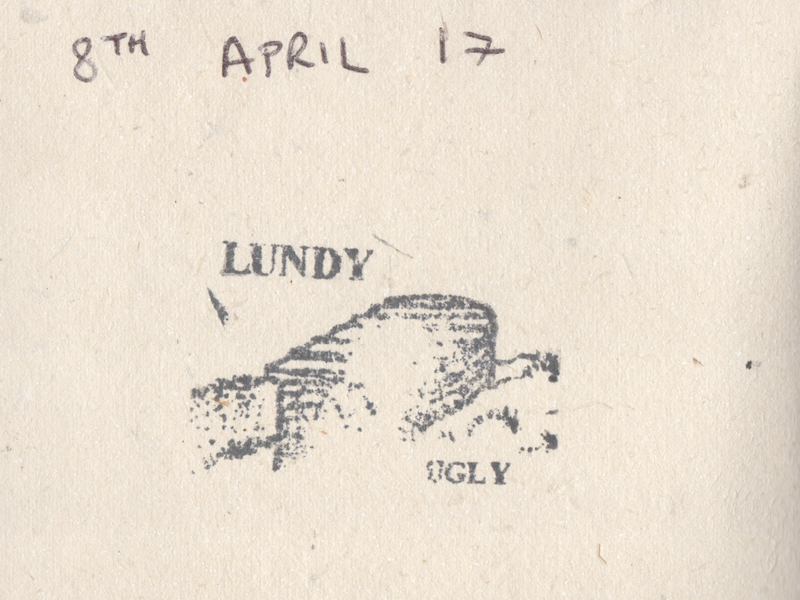 8TH APRIL 17
LUNDY
UGLY